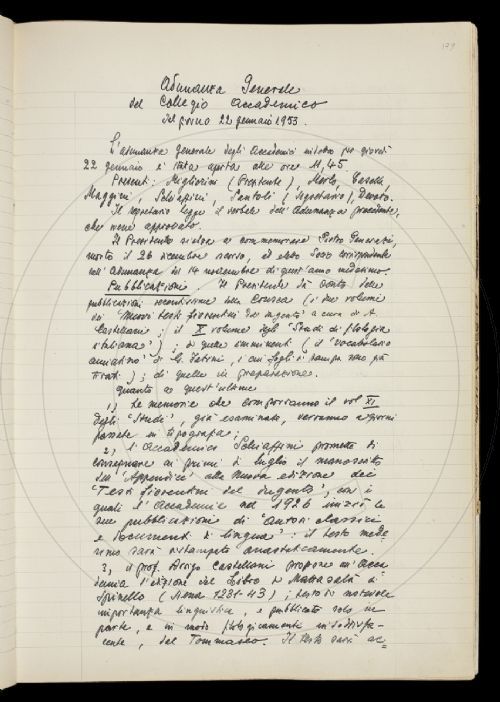 179
Adunanza Generale
del Collegio Accademico
del giorno 22 gennaio 1953.
L'adunanza generale degli Accademici indetta per giovedì
22 gennaio è stata aperta alle ore 11,45.
Presenti: Migliorini (Presidente), Merlo, Casella,
Maggini, Schiaffini, Santoli (Segretario), Devoto.
Il segretario legge il verbale dell'Adunanza precedente,
che viene approvato.
Il Presidente si alza a commemorare Pietro
morto il 26 dicembre scorso, ed eletto Socio corrispondente
nell'Adunanza del 14 novembre di quest'anno medesimo.
Pubblicazioni. Il Presidente dà conto delle
pubblicazioni recentissime della Crusca (i due volumi
dei "Nuovi testi fiorentini del Dugento" a cura di A.
Castellani; il X volume degli "Studi di filologia
italiana"); di quelle imminenti (il "Vocabolario
amiatino" di G. Fatini, i cui fogli di stampa sono già
tirati); di quelle in preparazione.
Quanto a quest'ultime
1) Le memorie che comporranno il vol XI
degli "Studi", già esaminate, verranno a giorni
passate in tipografia;
2) l'Accademico Schiaffini promette di
consegnare ai primi di luglio il manoscritto
dell'"Appendice" alla nuova edizione dei
"Testi fiorentini del dugento", con i
quali l'Accademia nel 1926 iniziò le
sue pubblicazioni di "autori classici
e documenti di lingua": il testo mede-
simo sarà ristampato anastaticamente.
3) il prof. Arrigo Castellani propone all'Acca-
demia l'edizione del Libro di Mattasalà di
Spinello (Siena 1231-43); testo di notevole
importanza linguistica, e pubblicato solo in
parte, e in modo filologicamente insoddisfa-
cente, dal Tommaseo. Il testo sarà ac=